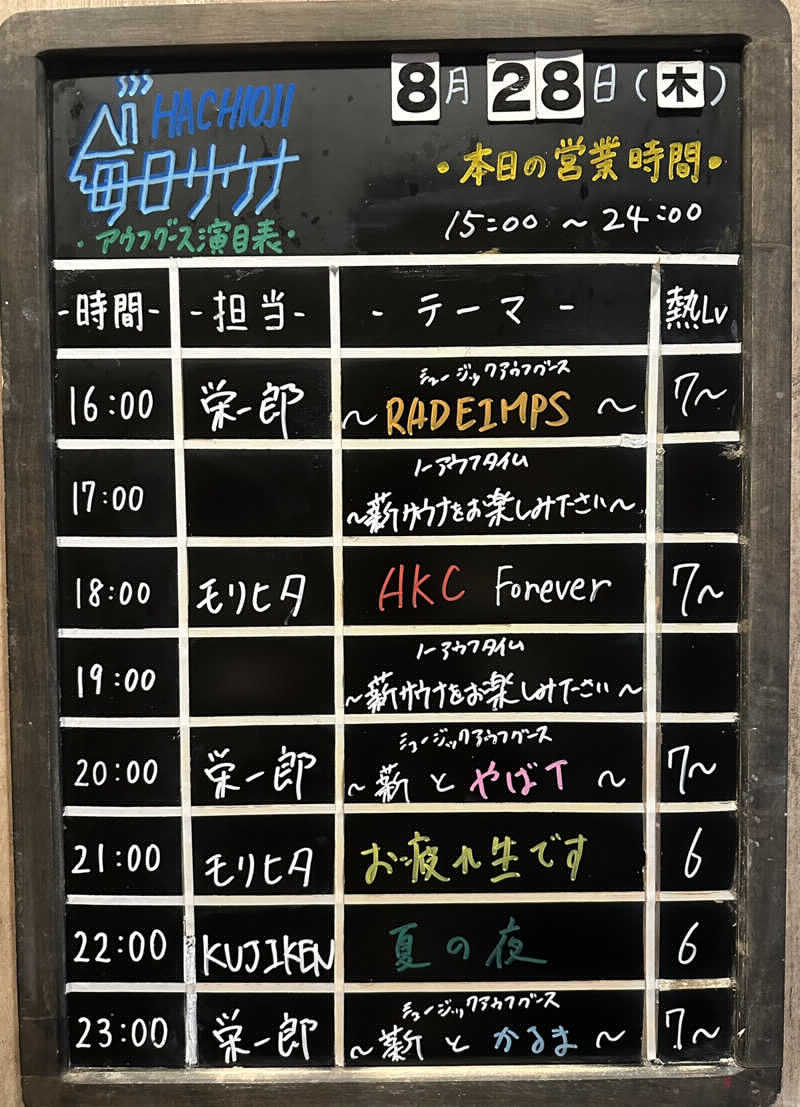 HACHIOJI
毎日サウナ
・アウフグース演目表・
8月28日(木)
・本日の営業時間・
15:00 ~ 24:00
-時間- -担当- - テーマ - 熱Lv
ミュージックアウフグース
16:00 栄一郎 ~ RADEIMPS ~ 7~
ノーアウフタイム
17:00 ~薪サウナをお楽しみ下さい~
18:00 モリヒタ AKC Forever 7~
ノーアウフタイム
19:00 ~薪サウナをお楽しみ下さい~
ミュージックアウフグース
20:00 栄一郎 ~薪 と やばT ~ 7~
21:00 モリヒタ お疲れ生です 6
22:00 KUJIKEN 夏の夜 6
ミュージックアウフグース
23:00 栄一郎 ~薪 と かるま ~ 7~